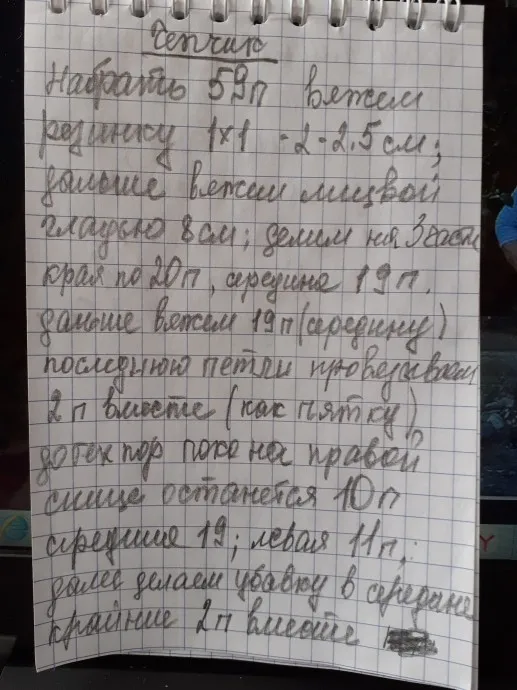 Чепчик
Набрать 59п вяжем
резинку 1х1 -2-2.5см;
дальше вяжем лицвой
гладью 8см; делим на 3 части
края по 20п, середина 19п.
дальше вяжем 19п (середину)
последнюю петли провязываем
2п вместе (как пятку)
до тех пор пока на правой
спице останется 10п
средние 19; левая 11п;
далее делаем убавку в середине
крайние 2п вместе